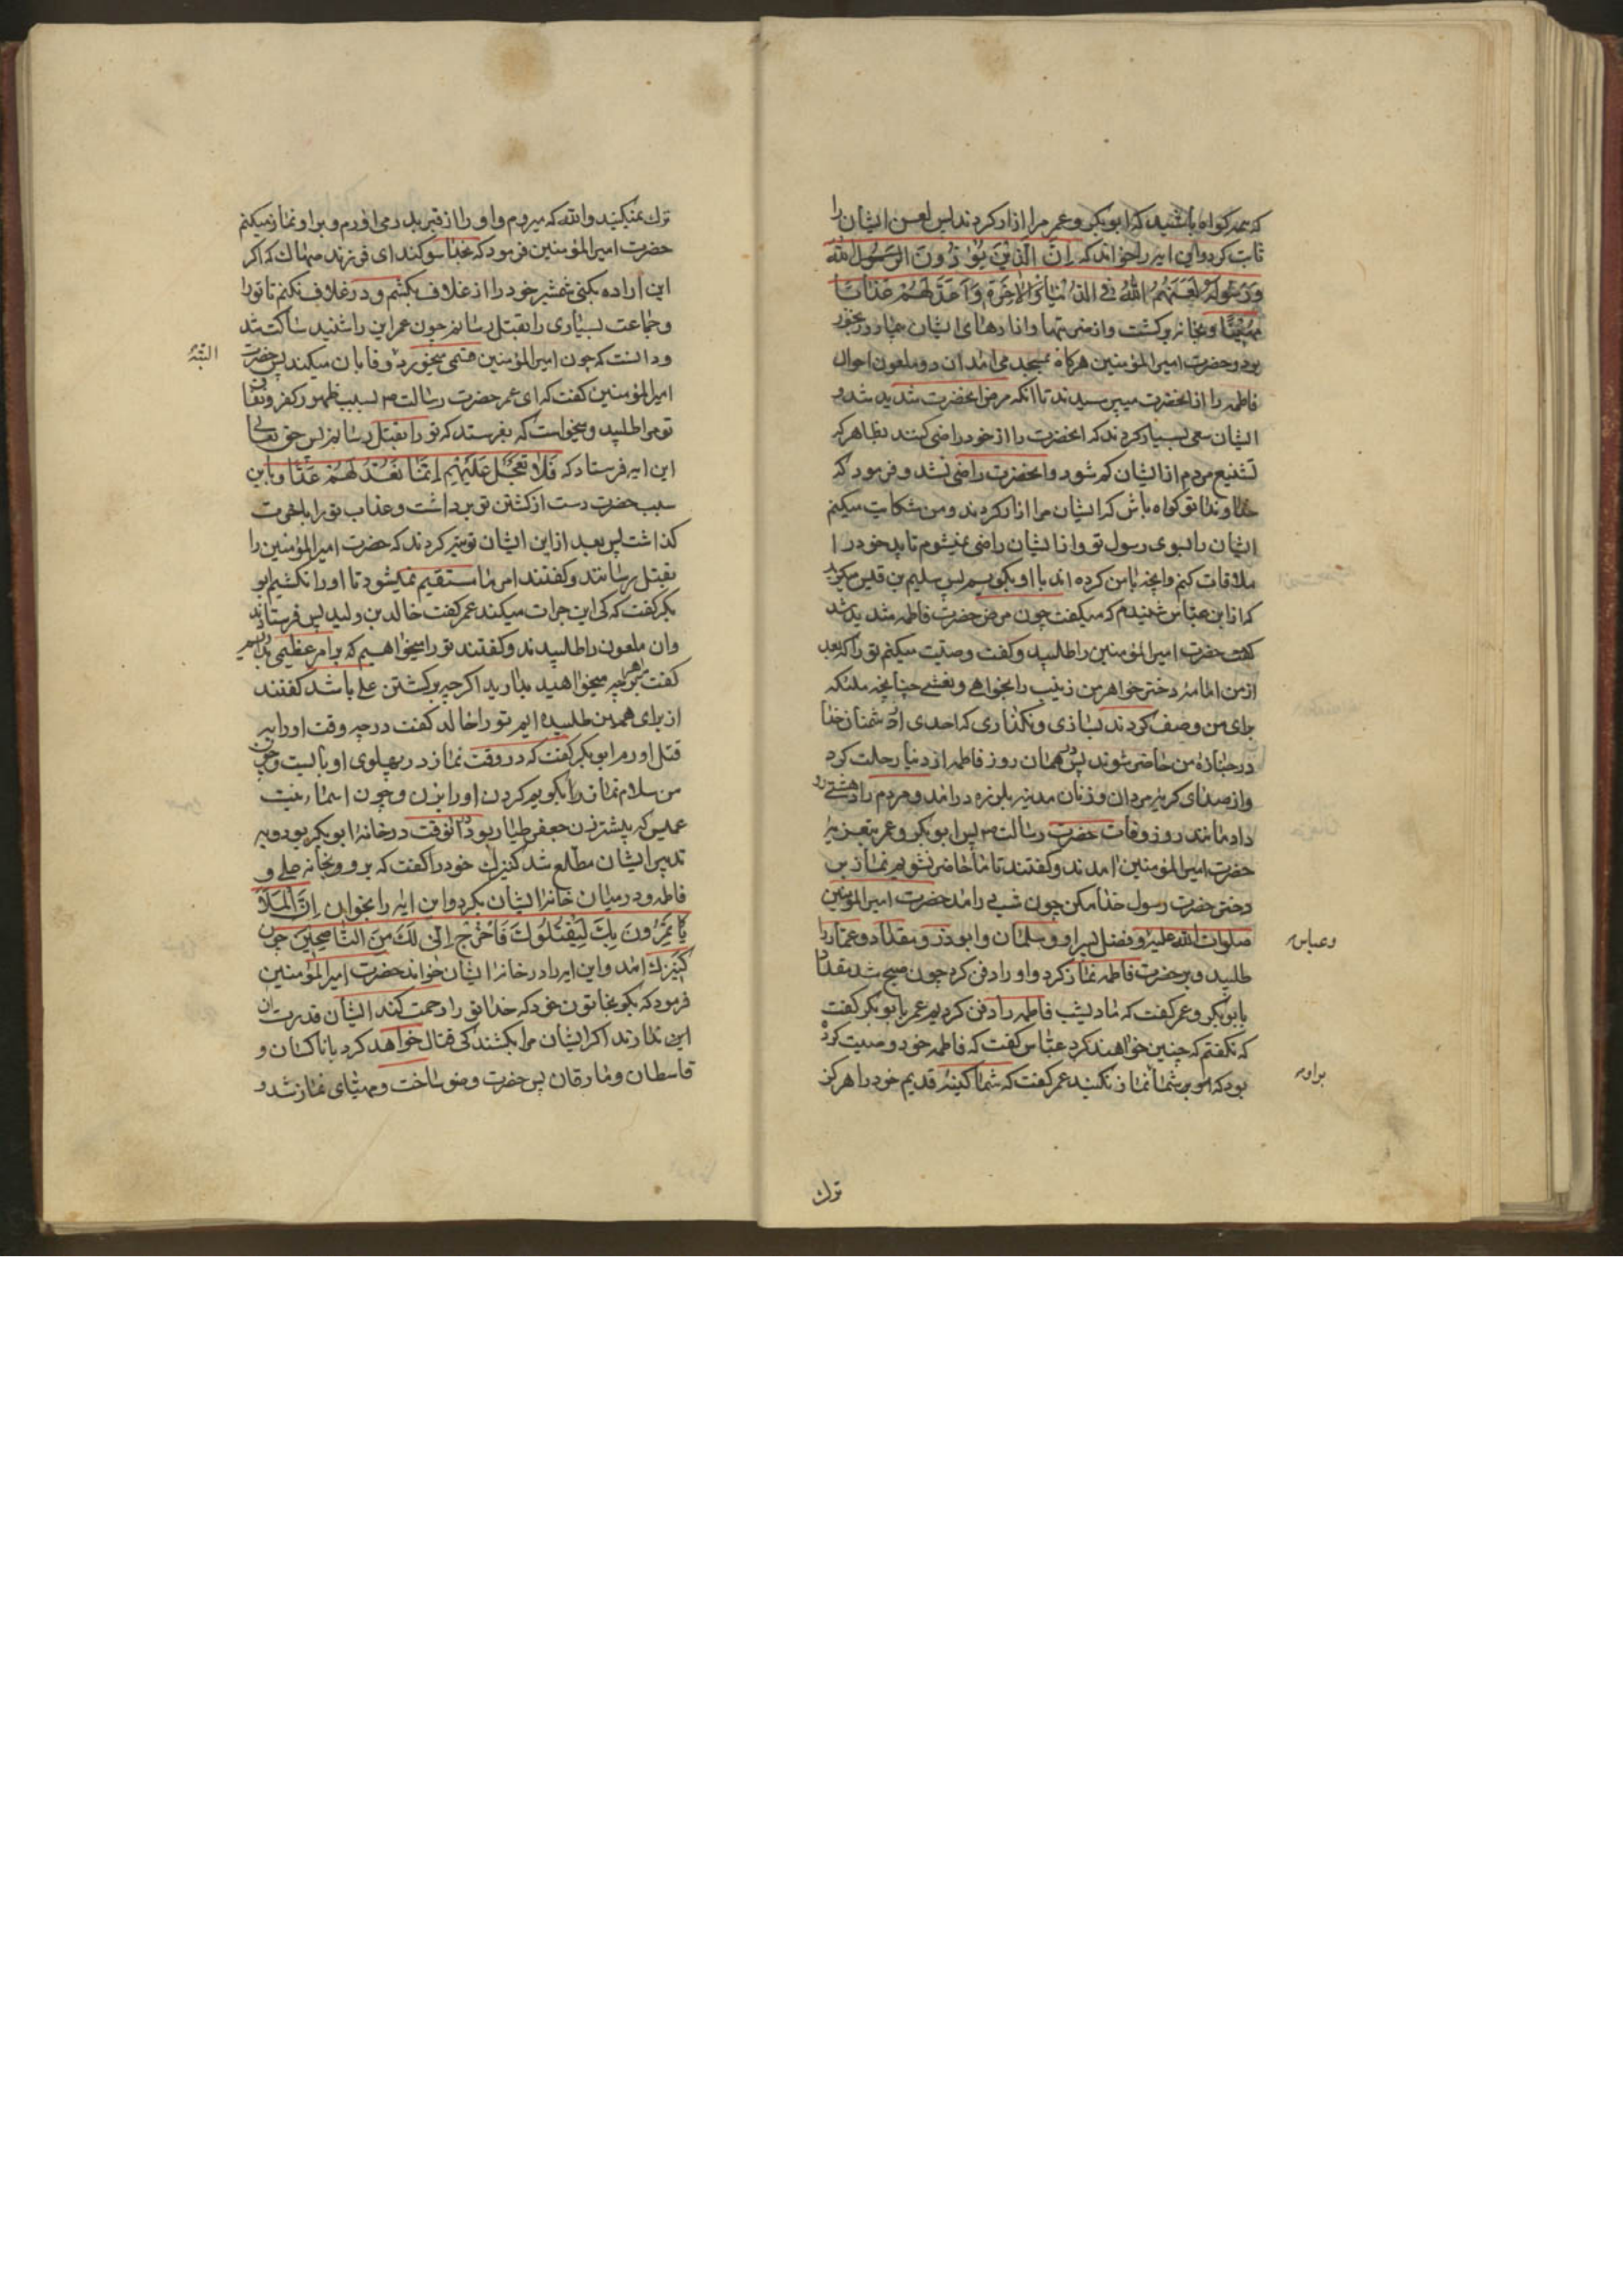 که همه کواه باشید که ابوبکر و عمر مرا ازار کردند پس لعن ایشان را
ثابت کرد و این ایه را خواند که اِنَّ الَّذینَ یُؤذُونَ الرَّسُول الله
وَرَسُولَهُ لَعَنَهُمُ اللّٰهُ فِی الدُّنیٰا وَالاٰخِرَةِ وَاَعَدَّ لَهُمْ عَذٰابًا
مُهینًا و بخانه برکشت و از ضربتها و ازارهای ایشان بیمار و رنجور
بود و حضرت امیرالمؤمنین هرکاه بمسجد می امد ان دو ملعون احوال
فاطمه را از انحضرت میپرسیدند تا انکه مرض انحضرت شدید شد و
ایشان سعی بسیار کردند که انحضرت را از خود راضی کنند بظاهر که
تشنیع مردم از ایشان کم شود و انحضرت راضی نشد و فرمود که
خداوندا تو کواه باش که ایشان مرا ازار کردند و من شکایت میکنم
ایشان را بسوی رسول تو و از ایشان راضی نمیشوم تا پدر خود را
ملاقات کنم و انچه با من کرده اند با او بکویم پس سلیم بن قیس میکوید
که از ابن عباس شنیدم که میکفت چون مرض حضرت فاطمه شدید شد
کفت حضرت امیرالمؤمنین را طلبید و کفت وصیّت میکنم تو را که بعد
از من امامه دختر خواهر من زینب را بخواهی و نعشی چنانچه ملئکه
برای من وصف کردند بسازی و نکذاری که احدی از دشمنان خدا
در جنازه من حاضر شوند پس در همان روز فاطمه از دنیا رحلت کرد
و از صدای کریه مردان و زنان مدینه بلرزه در امد و مردم را دهشتی رو
داد مانند روز وفات حضرت رسالت ص پس ابوبکر و عمر بتعزیه
حضرت امیرالمؤمنین امدند و کفتند تا ما حاضر نشویم نماز بر
دختر حضرت رسول خدا مکن چون شب در امد حضرت امیرالمؤمنین
صلوات الله علیه و فضل پسر او و سلمان و ابوذر و مقداد و عمار را
وعباس
طلبید و بر حضرت فاطمه نماز کرد و او را دفن کرد چون صبح شد مقداد
بابوبکر و عمر کفت که ما دیشب فاطمه را دفن کردیم عمر بابوبکر کفت
که نکفتم که چنین خواهند کرد عبّاس کفت که فاطمه خود وصیت کرده
بود که شما نماز نکنید عمر کفت که شما کینه قدیم خود را هرکز
براو
ترک
ترک نمیکنید والله که میروم و او را از قبر بدر می اورم و بر او نماز میکنم
حضرت امیرالمؤمنین فرمود که بخدا سوکند ای فرزند صهاک که اکر
این اراده بکنی شمشیر خود را از غلاف بکشم و در غلاف نکنم تا تو را
و جماعت بسیاری را بقتل رسانم چون عمر این را شنید ساکت شد
و دانست که چون امیرالمؤمنین قسمی میخورد وفا بان میکند پس حضرت
البته
امیرالمؤمنین کفت که ای عمر حضرت رسالت ص بسبب ظهور کفر و نفاق
تو مرا طلبید و میخواست که بفرستد که تو را بقتل رسانم پس حق تعالی
این ایه فرستاد که فَلاٰ تَعْجَلْ عَلَیْهِمْ اِنَّمٰا نَعُدُّ لَهُمْ عَدًّا و باین
سبب حضرت دست از کشتن تو برداشت و عذاب تو را باخرت
کذاشت پس بعد از این ایشان تدبیر کردند که حضرت امیرالمؤمنین را
بقتل رسانند و کفتند امر ما مستقیم نمیشود تا او را نکشیم ابو
بکر کفت که کی این جرات میکند عمر کفت خالد بن ولید پس فرستادند
وان ملعون را طلبیدند و کفتند تو را میخواهیم که بر امر عظیمی بداریم
کفت بر هرچه میخواهید بدارید اکرچه بر کشتن علی باشد کفتند
از برای همین طلبیده ایم تو را خالد کفت در چه وقت او را به
قتل اورم ابوبکر کفت که در وقت نماز در پهلوی او بایست و چون
من سلام نماز را بکویم کردن او را بزن و چون اسما بنت
عمیس که پیشتر زن جعفر طیار بود در انوقت در خانه ابوبکر بود و به
تدبیر ایشان مطّلع شد کنیزک خود را کفت که برو و بخانه علی و
فاطمه و در میان خانه ایشان بکرد و این ایه را بخوان اِنَّ الْمَلَاَ
یَاْتَمِرُونَ بِکَ لِیَقْتُلُوکَ فَاخْرُجْ اِنّی لَکَ مِنَ النّٰاصِحینَ چون
کنیزک امد و این ایه را در خانه ایشان خواند حضرت امیرالمؤمنین
فرمود که بکو بخاتون خود که خدا تو را رحمت کند ایشان قدرت بر
این ندارند اکر ایشان مرا بکشند کی قتال خواهد کرد با ناکثان و
قاسطان و مارقان پس حضرت وضو ساخت و مهیّای نماز شد و